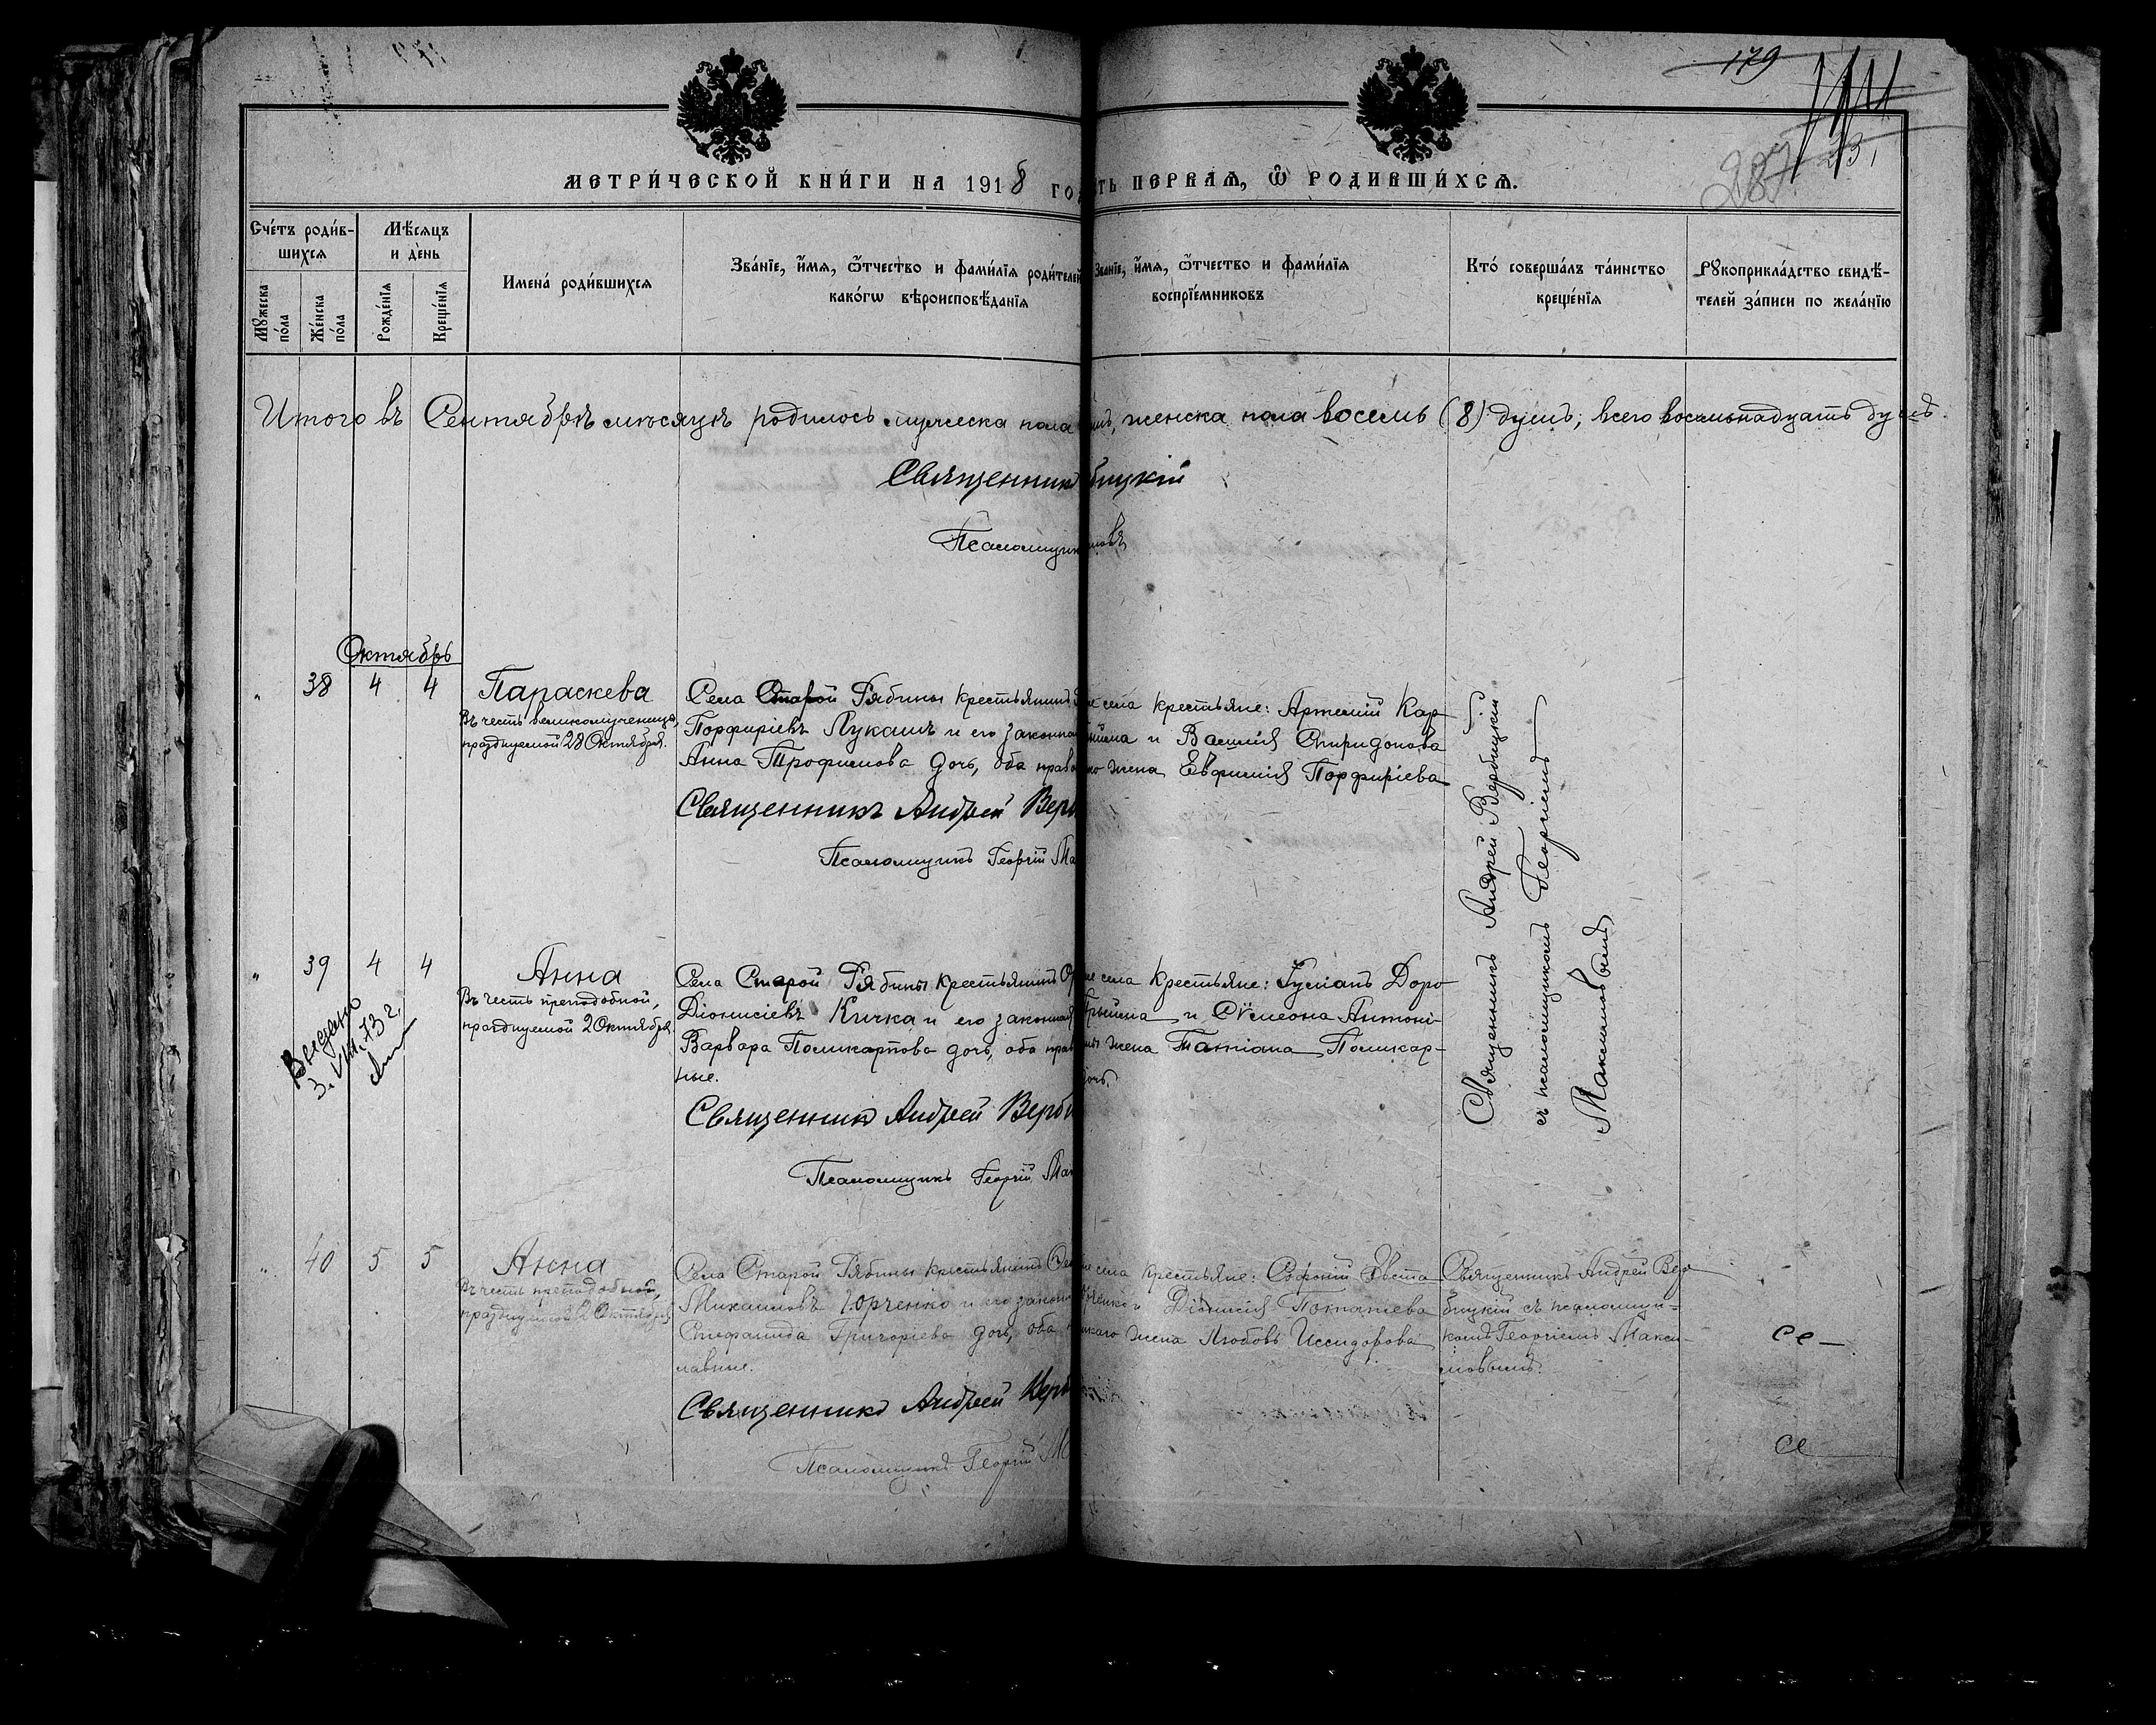 179
231
287
МЕТРИ́ЧЕСКОЙ КНИ́ГИ НА 1918 ГО
ТЬ ПЕРВАѦ, Ѿ РОДИВШИ́ХСѦ.
Сче́тъ роди́в-
шихсѧ
Мѣ́сѧцъ
и де́нь
Имена̀ роди́вшихсѧ
Зва́нїе, и́мѧ, ѻ́тчество и фами́лїѧ роди́телей
како́гѡ вѣроисповѣ́данїѧ
Зва́нїе, и́мѧ, ѻ́тчество и фами́лїѧ
воспрїе́мниковъ
Кто́ соверша́лъ та́инство
креще́нїѧ
Рꙋкоприкла́дство свидѣ́-
телей за́писи по жела́нїю
Мꙋ́жеска
по́ла
Же́нска
по́ла
Рожде́нїѧ
Креще́нїѧ
Итого въ Сентябрѣ мѣсяцѣ родилось мужеска пола
женска пола восемь (8) душъ; всего восемьнадцать душъ.
Священник
бицкій
Псаломщик
мовъ
Октябрь
" 38 4 4
Параскева
Въ честь великомученицы,
празднуемой 28 Октября.
Села Старой Рябины крестьянинъ
Порфиріевъ Лукашъ и его законная
Анна Трофимова дочь, оба право
Священникъ Андрей Верб
Псаломщикъ Георгій Ма
же села крестьяне: Артемій Кар
и Василія Спиридонова
жена Евфимія Порфиріева
Священникъ Андрей Вербицкій
съ псаломщикомъ Георгіемъ
Максимовымъ
" 39 4 4
Выдано
3.VIII.73 г.
Анна
Въ честь преподобной,
празднуемой 2 Октября.
Села Старой Рябины крестьянинъ
Діонисіевъ Кичка и его законная
Варвара Поликарпова дочь, оба прав
ные.
Священник Андрей Верби
Псаломщикъ Георгій Мак
же села крестьяне: Іуліанъ Доро
и Сѵмеона Антоні-
жена Татіана Поликар-
дочь.
" 40 5 5
Анна
Въ честь преподобной,
празднуемой 2 Октября.
Села Старой Рябины крестьянинъ
Михаиловъ Юрченко и его закон
Стефанида Григоріева дочь, оба
лавные.
Священник Андрей Верб
Псаломщикъ Георгій М
же села крестьяне: Софоній Евста
ченко и Діонисія
жена Любовь Исидорова
Священникъ Андрей Вер
бицкій съ псаломщи-
комъ Георгіемъ Макси-
мовымъ.